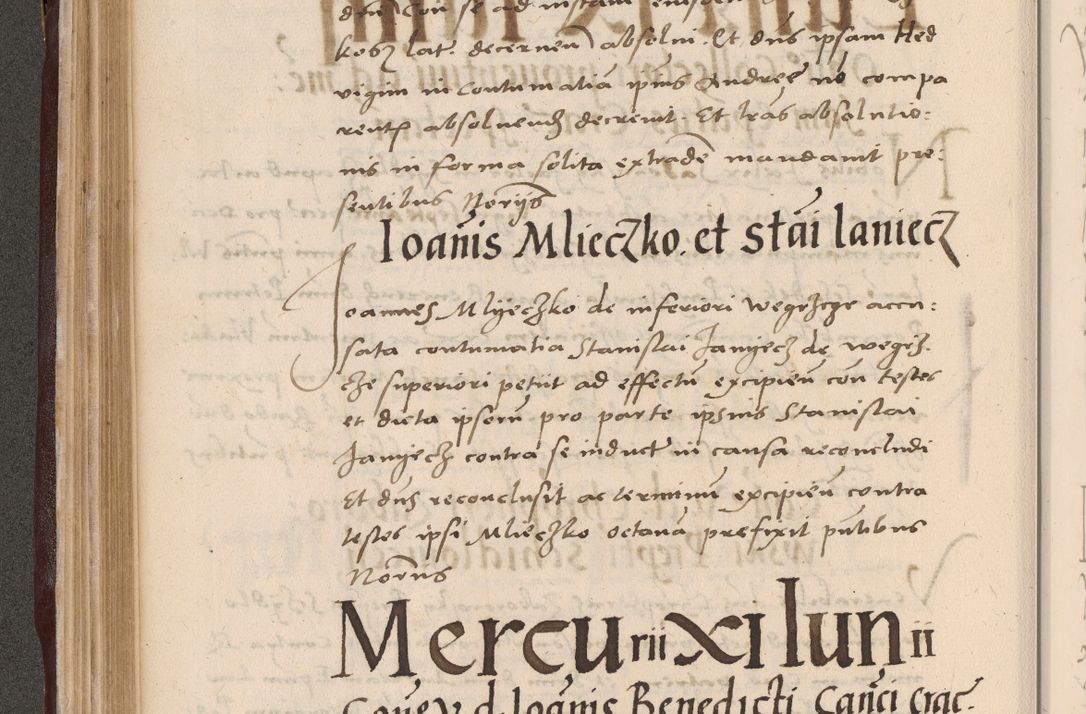 kosz lat. decernen absolui. Et dns ipsam Hed
vigim in contumatiā ipīus Andreę nō compa
rentꝭ absoluendā decrevit. Et lrās absolutio:
nis in forma solita extradē mandavit pre:
sentibus Noriis
Ioānis Mlieczko. et stāi laniecz
Ioannes Mlyeczko de inferiori wegrzcze accu:
sata contumatia Stanislai Janyecz de wegrz
cze superiori petiit ad effectū excipien con testes
et dicta ipsorū pro parte ipsius Stanislai
Janyecz contra se induct in causa reconcludi
Et dns reconclusit ac terminū excipien contra
testes ipsi Mlieczko octavā prefixit pntibus
Norius
Mercurii XI Iunii
d. Ioānis Benedicti Canci crac.